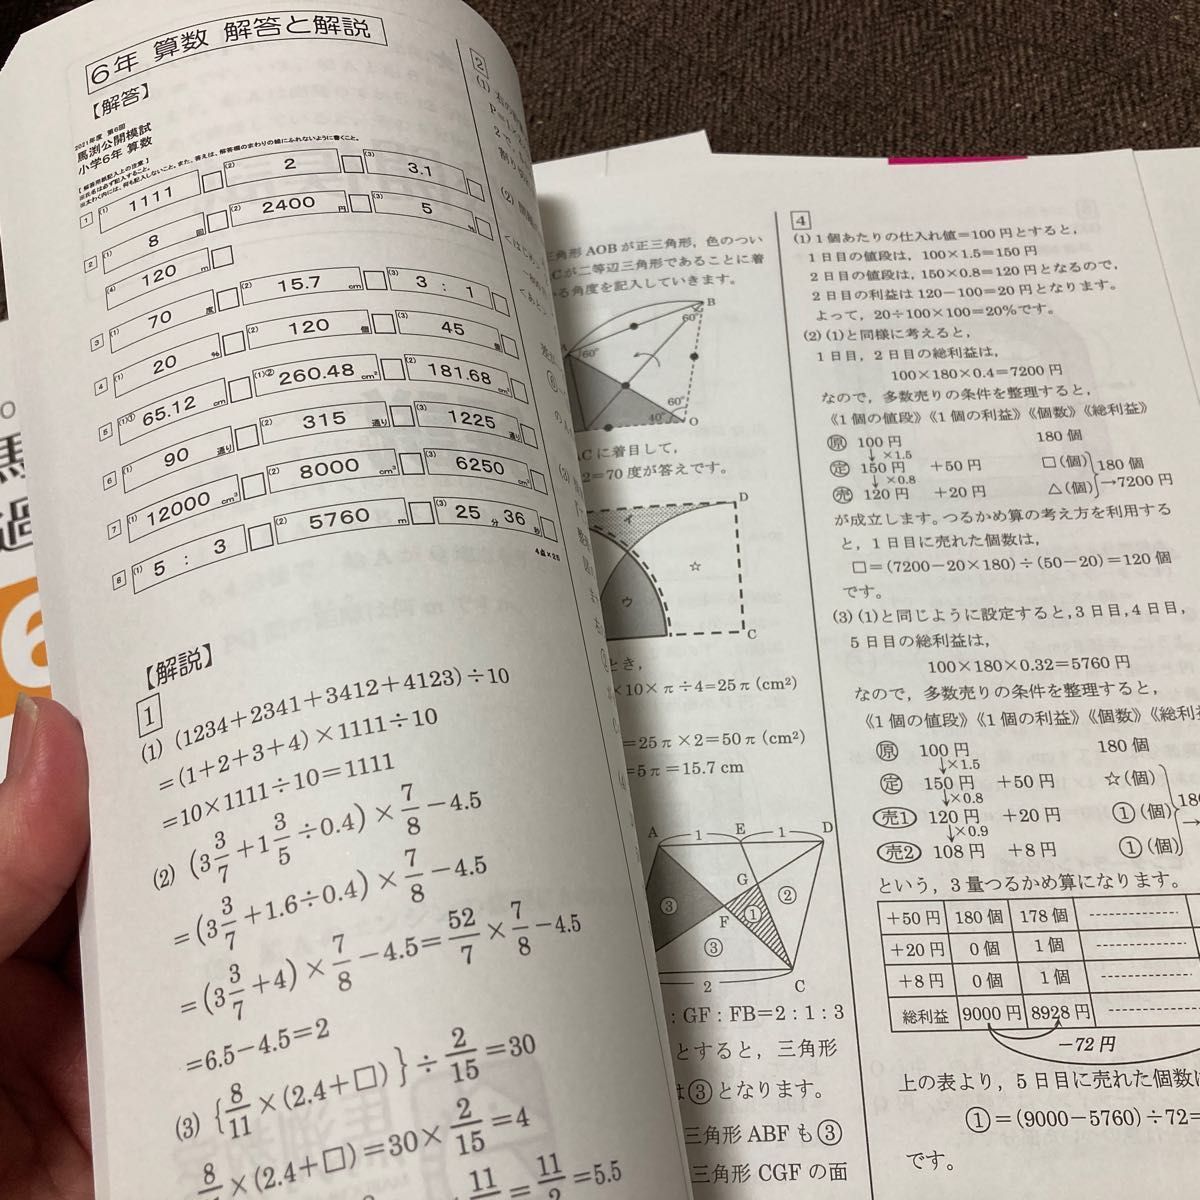 6年 算数 解答と解説
【解答】
2021年度 第6回
馬渕公開模試
小学6年 算数
【 解答用紙記入上の注意 】
1 (1) 1111 (2) 2 (3) 3.1
2 (1) 8 回 (2) 2400 円 (3) 5 %
(4) 120 m
3 (1) 70 度 (2) 15.7 cm (3) 3 : 1
4 (1) 20 % (2) 120 個 (3) 45 個
5 (1)① 65.12 cm (1)② 260.48 cm² (2) 181.68 cm²
6 (1) 90 通り (2) 315 通り (3) 1225 通り
7 (1) 12000 cm³ (2) 8000 cm³ (3) 6250 cm³
8 (1) 5 : 3 (2) 5760 m (3) 25 分 36 秒
4点×25
【解説】
1
(1) (1234+2341+3412+4123)÷10
=(1+2+3+4)×1111÷10
=10×1111÷10=1111
(2) (3 3/7+1 3/5÷0.4)×7/8−4.5
=(3 3/7+1.6÷0.4)×7/8−4.5
=(3 3/7+4)×7/8−4.5=52/7×7/8−4.5
=6.5−4.5=2
(3) {8/11×(2.4+□)}÷2/15=30
8/11×(2.4+□)=30×2/15=4
11/2=5.5
2
(1)
(2)
三角形AOBが正三角形，色のつい
Cが二等辺三角形であることに着
る角度を記入していきます。
B
60°
60°
60°
40°
O
Cに着目して，
2=70度が答えです。
D
イ
☆
ウ
C
とき，
×10×π÷4=25π(cm²)
=25π×2=50π(cm²)
=5π=15.7 cm
A 1 E 1 D
G
②
③
①
F
③
2
C
：GF：FB=2：1：3
とすると，三角形
は③となります。
三角形ABFも③
三角形CGFの面
4
(1) 1個あたりの仕入れ値=100円とすると，
1日目の値段は，100×1.5=150円
2日目の値段は，150×0.8=120円となるので，
2日目の利益は120−100=20円となります。
よって，20÷100×100=20%です。
(2) (1)と同様に考えると，
1日目，2日目の総利益は，
100×180×0.4=7200円
なので，多数売りの条件を整理すると，
《1個の値段》《1個の利益》《個数》《総利益》
原 100円 180個
↓×1.5
定 150円 +50円 □(個)
↓×0.8
売 120円 +20円 △(個)
180個
→7200円
が成立します。つるかめ算の考え方を利用する
と，1日目に売れた個数は，
□=(7200−20×180)÷(50−20)=120個
です。
(3) (1)と同じように設定すると，3日目，4日目，
5日目の総利益は，
100×180×0.32=5760円
なので，多数売りの条件を整理すると，
《1個の値段》《1個の利益》《個数》《総利
原 100円 180個
↓×1.5
定 150円 +50円 ☆(個)
↓×0.8
売1 120円 +20円 ①(個)
↓×0.9
売2 108円 +8円 ①(個)
という，3量つるかめ算になります。
+50円 180個 178個
+20円 0個 1個
+8円 0個 1個
総利益 9000円 8928円
−72円
上の表より，5日目に売れた個数は
①=(9000−5760)÷72=
です。